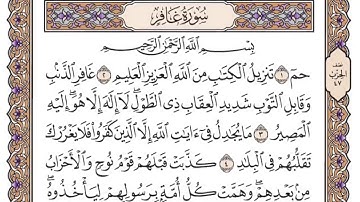 سُورَةُ غَافِرٍ
بِسْمِ ٱللَّهِ ٱلرَّحْمَٰنِ ٱلرَّحِيمِ
حمٓ ١ تَنزِيلُ ٱلْكِتَٰبِ مِنَ ٱللَّهِ ٱلْعَزِيزِ ٱلْعَلِيمِ ٢ غَافِرِ ٱلذَّنۢبِ
وَقَابِلِ ٱلتَّوْبِ شَدِيدِ ٱلْعِقَابِ ذِى ٱلطَّوْلِ ۖ لَآ إِلَٰهَ إِلَّا هُوَ ۖ إِلَيْهِ
ٱلْمَصِيرُ ٣ مَا يُجَٰدِلُ فِىٓ ءَايَٰتِ ٱللَّهِ إِلَّا ٱلَّذِينَ كَفَرُوا۟ فَلَا يَغْرُرْكَ
تَقَلُّبُهُمْ فِى ٱلْبِلَٰدِ ٤ كَذَّبَتْ قَبْلَهُمْ قَوْمُ نُوحٍ وَٱلْأَحْزَابُ
مِنۢ بَعْدِهِمْ ۖ وَهَمَّتْ كُلُّ أُمَّةٍۭ بِرَسُولِهِمْ لِيَأْخُذُوهُ ۖ
نصف
الحزب
٤٧